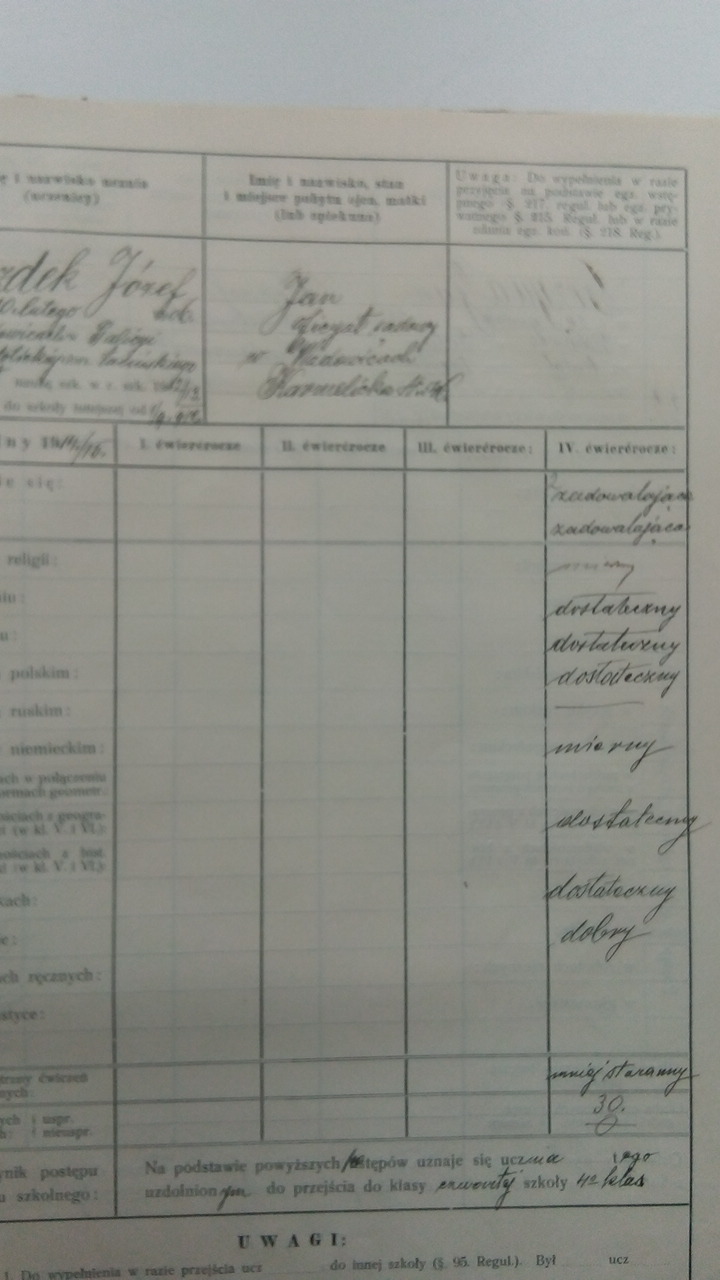 ę i nazwisko ucznia
(uczenicy)
Imię i nazwisko, stan
i miejsce pobytu ojca, matki
(lub opiekuna)
Uwaga: Do wypełnienia w razie
przyjęcia na podstawie egz. wstę-
pnego §. 217. regul. lub egz. pry-
watnego §. 215. Regul. lub w razie
zdania egz. koń. (§. 218. Reg.).
dek Józef
lutego
Jan
w Wadowicach
Karmelicka
do szkoły tutejszej od
ny 19
I. ćwierćrocze
II. ćwierćrocze
III. ćwierćrocze:
IV. ćwierćrocze:
ie się:
zadowalające
zadowalająca
religii:
mierny
iu:
dostateczny
u:
dostateczny
polskim:
dostateczny
ruskim:
niemieckim:
mierny
ach w połączeniu
ormach geometr.:
ościach z geogra-
i (w kl. V. i VI.):
dostateczny
ościach z hist.
i (w kl. V. i VI.):
kach:
dostateczny
e:
dobry
ch ręcznych:
styce:
ćwiczeń
nych:
mniej staranny
ych uspr.
h: nieuspr.
30.
0
ynik postępu
u szkolnego:
Na podstawie powyższych postępów uznaje się ucznia tego
uzdolnionym do przejścia do klasy czwartej szkoły 4º klas
UWAGI:
1. Do wypełnienia w razie przejścia ucz do innej szkoły (§. 95. Regul.). Był ucz